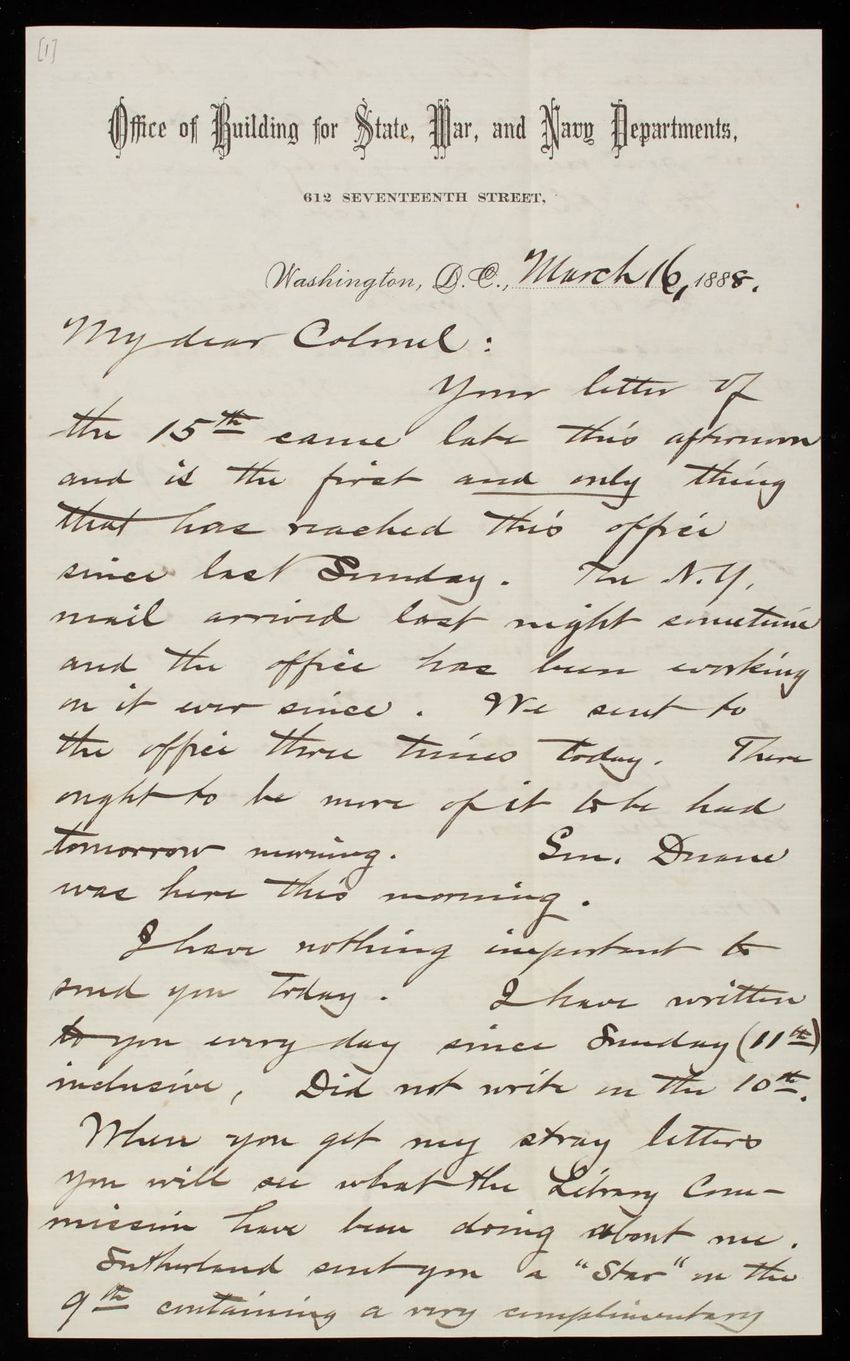 [1]
Office of Building for State, War, and Navy Departments,
612 SEVENTEENTH STREET,
Washington, D.C., March 16, 1888.
My dear Colonel:
Your letter of
the 15th came late this afternoon
and is the first and only thing
that has reached this office
since last Sunday. The N.Y.
mail arrived last night sometime
and the office has been working
on it ever since. We sent to
the office three times today. There
ought to be more of it to be had
tomorrow morning. Gen. Duane
was here this morning.
I have nothing important to
send you today. I have written
to you every day since Sunday (11th)
inclusive, Did not write on the 10th.
When you get my stray letters
you will see what the Library Com-
mission have been doing about me.
Sutherland sent you a "Star" on the
9th containing a very complimentary